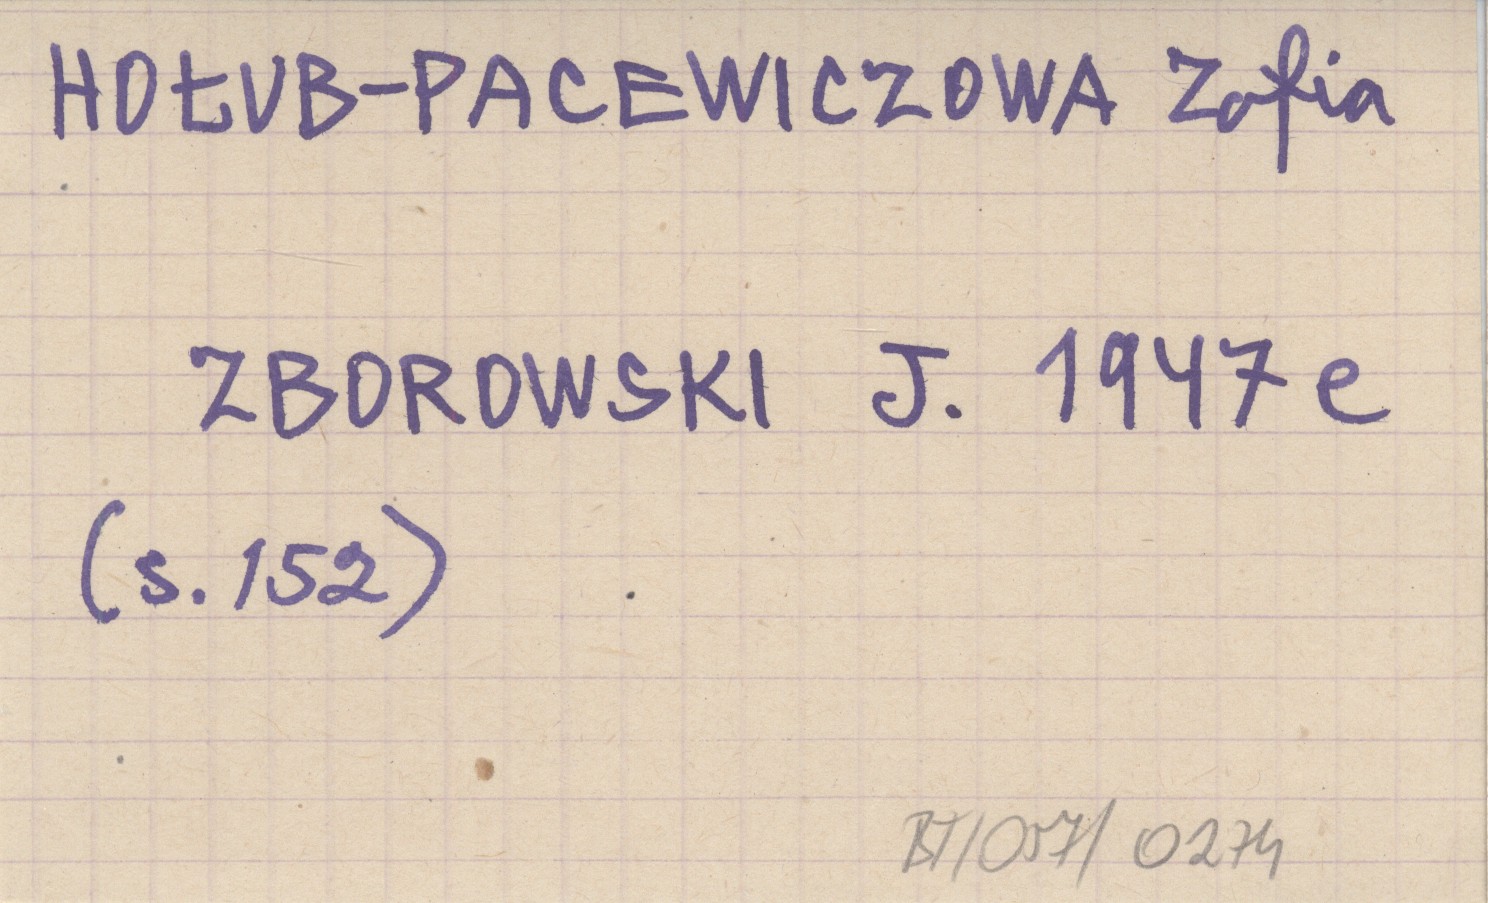 HOŁUB-PACEWICZOWA Zofia
ZBOROWSKI J. 1947 e
(s. 152)
BT/057/ 0274